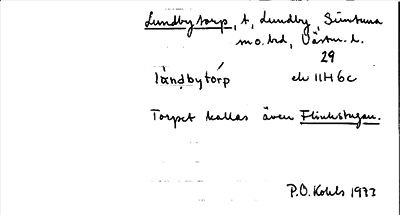 Lundbytorp, t, Lundby, Simtuna
sn o. hd, Västm. l.
29
lùndbytórp ek 11H6c
Torpet kallas även Flinkstugan.
P.O. Kohls 1933